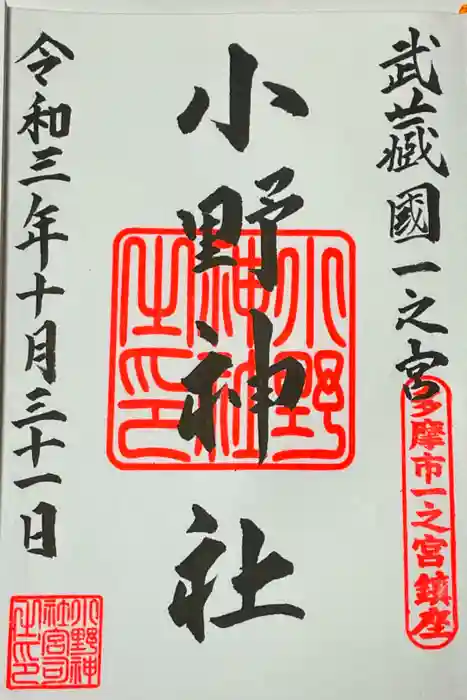 武蔵國一之宮
多摩市一之宮鎮座
小野神社
小野
神社
之印
令和三年十月三十一日
小野神
社宮司
之印